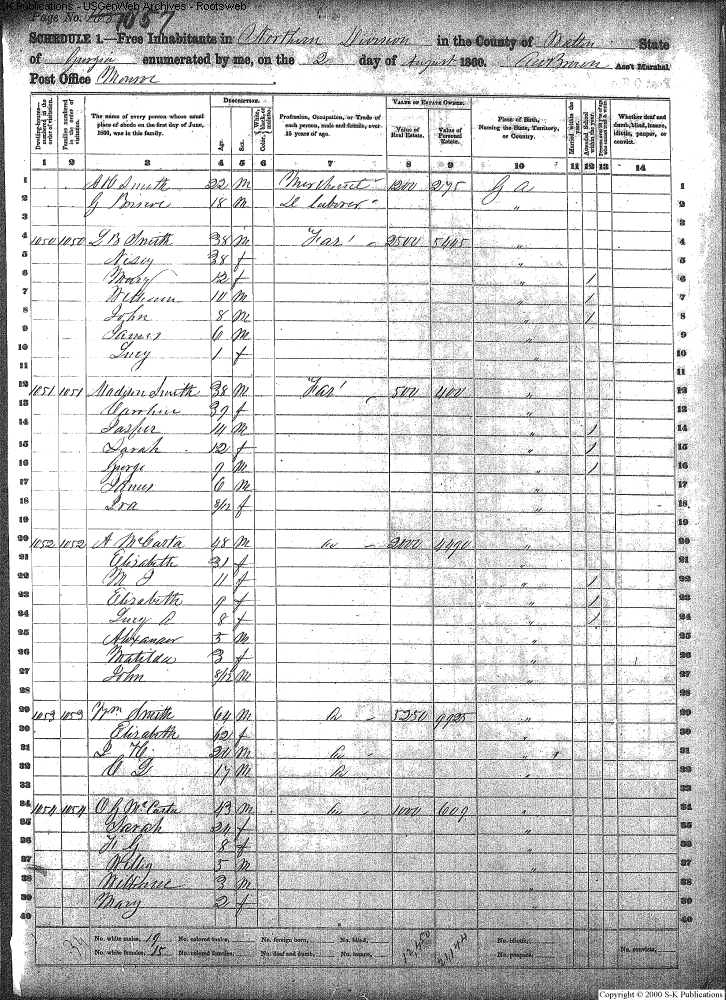 S-K Publications - USGenWeb Archives - Rootsweb
Page No. 1057
SCHEDULE 1.—Free Inhabitants in Northern Division in the County of Walton State
of Georgia enumerated by me, on the 2 day of August 1860. Ass't Marshal
Post Office Monroe
DESCRIPTION. VALUE OF ESTATE OWNED.
Dwelling-houses—numbered in the order of visitation. Families numbered in the order of visitation. The name of every person whose usual place of abode on the first day of June, 1860, was in this family. Age. Sex. Color, White, black, or mulatto. Profession, Occupation, or Trade of each person, male and female, over 15 years of age. Value of Real Estate. Value of Personal Estate. Place of Birth, Naming the State, Territory, or Country. Married within the year. Attended School within the year. Whether deaf and dumb, blind, insane, idiotic, pauper, or convict.
1 2 3 4 5 6 7 8 9 10 11 12 13 14
1 Smith 22 M Merchant 1200 275 Ga 1
2 18 M laborer " 2
3 3
4 1050 1050 L B Smith 38 M Far' 2500 5445 " 4
5 38 f " 5
6 Mary 12 f " / 6
7 William 10 M " / 7
8 John 8 M " / 8
9 James 6 M " 9
10 Lucy 1 f " 10
11 11
12 1051 1051 Madison Smith 38 M Far' 500 400 " 12
13 Caroline 37 f " 13
14 Jasper 14 M " / 14
15 Sarah 12 f " / 15
16 George 9 M " / 16
17 James 6 M " 17
18 Ira 8/12 f " 18
19 19
20 1052 1052 A McCarta 48 M 2000 4490 " 20
21 Elizabeth 31 f " 21
22 M J 11 f " / 22
23 Elizabeth 9 f " / 23
24 Lucy A 8 f " / 24
25 Alexander 5 M " 25
26 Matilda 3 f " 26
27 John 8/12 M " 27
28 28
29 1053 1053 Wm Smith 64 M 5250 9925 " 29
30 Elizabeth 62 f " 30
31 20 M " 31
32 17 M " 32
33 33
34 1054 1054 McCarta 43 M 1000 609 " 34
35 Sarah 24 f " 35
36 8 f " 36
37 5 M " 37
38 3 M " 38
39 Mary 2 f " 39
40 40
No. white males, 19 No. colored males, No. foreign born, No. blind, 12,450 No. idiotic,
No. white females, 15 No. colored females, No. deaf and dumb, No. insane, No. paupers, No. convicts,
Copyright © 2000 S-K Publications